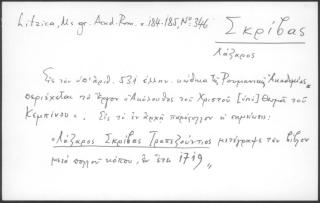 Litzica, Ms gr. Acad. Rom. σ. 184-185, Nº 346
Σκρίβας
Λάζαρος
Εἰς τὸν ὑπ' ἀριθ. 531 ἑλλην. κώδικα τῆς Ρουμανικῆς Ἀκαδημίας
περιέχεται τὸ ἔργον «Ἀκόλουθος τοῦ Χριστοῦ [ὑπὸ] Θωμᾶ τοῦ
Κεμπίνου». Εἰς τὸ ἐν ἀρχῇ παράφυλλον ἡ σημείωσις:
«Λάζαρος Σκρίβας Τραπεζούντιος μετέγραψε τὴν βίβλον
μετὰ πολλοῦ κόπου, ἐν ἔτει 1719»